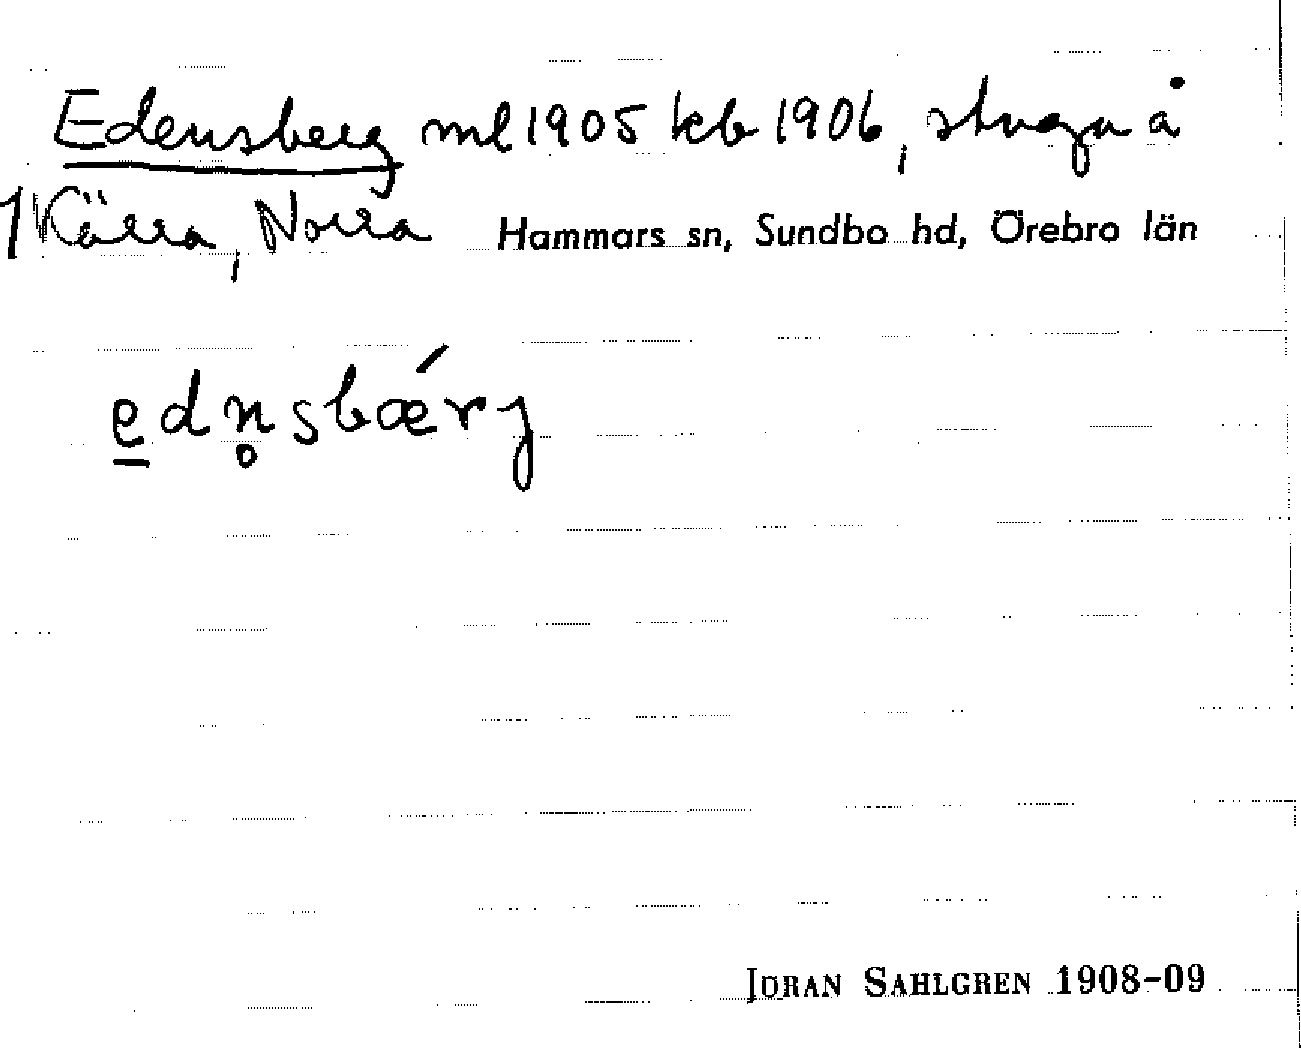 Edensberg ml 1905 kb 1906, stuga å
1 Kärra, Norra Hammars sn, Sundbo hd, Örebro län
e̱dn̥sbǽrj
JÖRAN SAHLGREN 1908-09